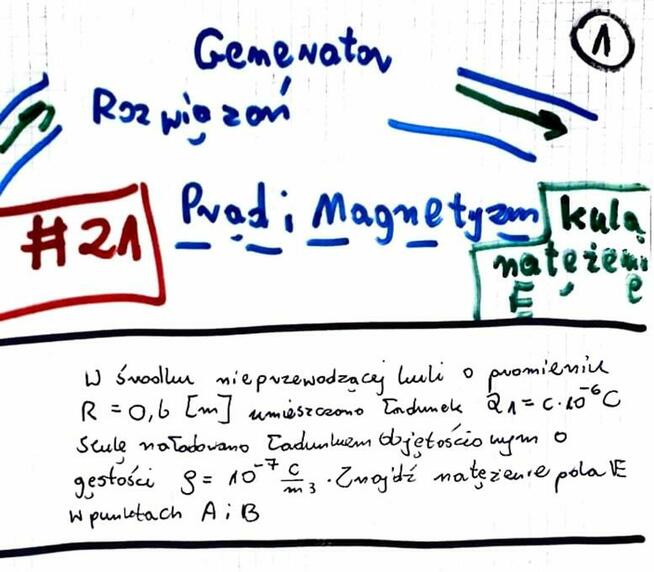 1
Generator
Rozwiązań
#21
Prąd i Magnetyzm
kula
natężenie
E
W środku nieprzewodzącej kuli o promieniu
R = 0,6 [m] umieszczono ładunek Q1 = C·10⁻⁶C
naładowano ładunkiem objętościowym o
gęstości ρ = 10⁻⁷ C/m3. Znajdź natężenie pola E
w punktach A i B